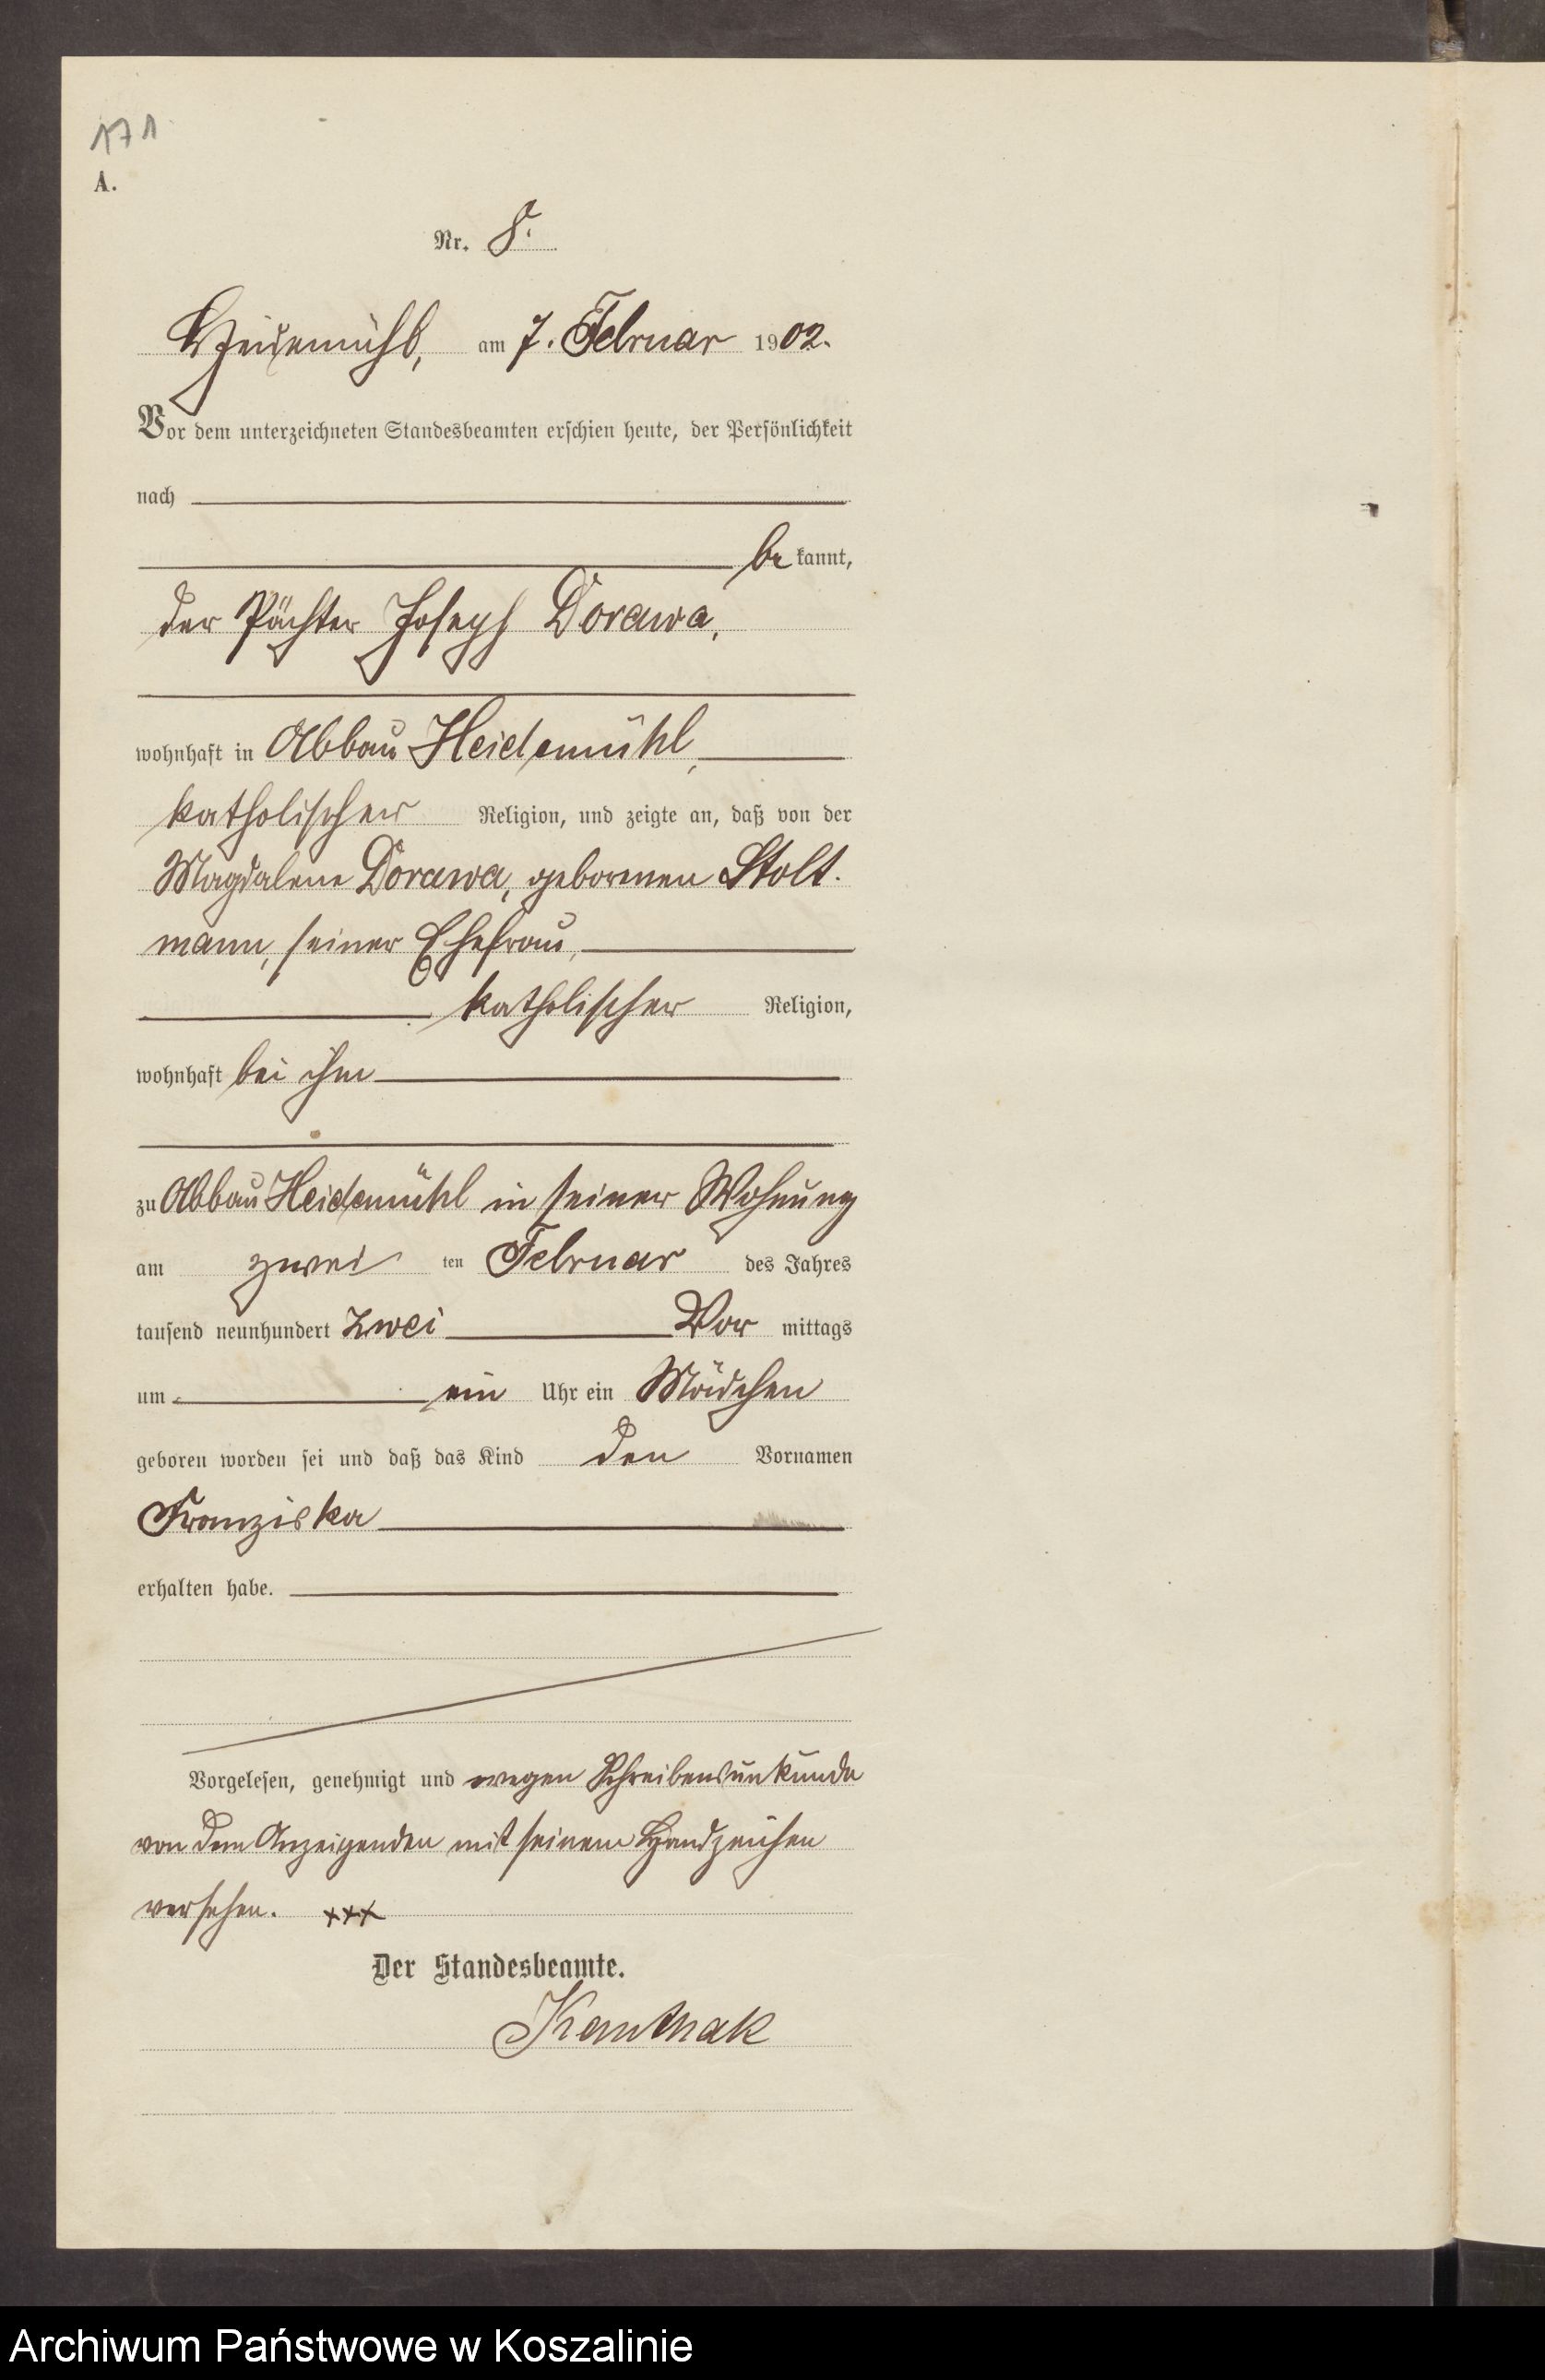 171
A.
Nr. 8.
Heidemühl, am 7. Februar 1902.
Vor dem unterzeichneten Standesbeamten erschien heute, der Persönlichkeit
nach
be kannt,
der Pächter Joseph Dorawa,
wohnhaft in Abbau Heidemühl,
katholischer Religion, und zeigte an, daß von der
Magdalene Dorawa, geborenen Stolt-
mann, seiner Ehefrau,
katholischer Religion,
wohnhaft bei ihm
zu Abbau Heidemühl in seiner Wohnung
am zwei ten Februar des Jahres
tausend neunhundert zwei Vor mittags
um ein Uhr ein Mädchen
geboren worden sei und daß das Kind den Vornamen
Franziska
erhalten habe.
Vorgelesen, genehmigt und wegen Schreibensunkunde
von dem Anzeigenden mit seinem Handzeichen
versehen. xxx
Der Standesbeamte.
Kanthak
Archiwum Państwowe w Koszalinie